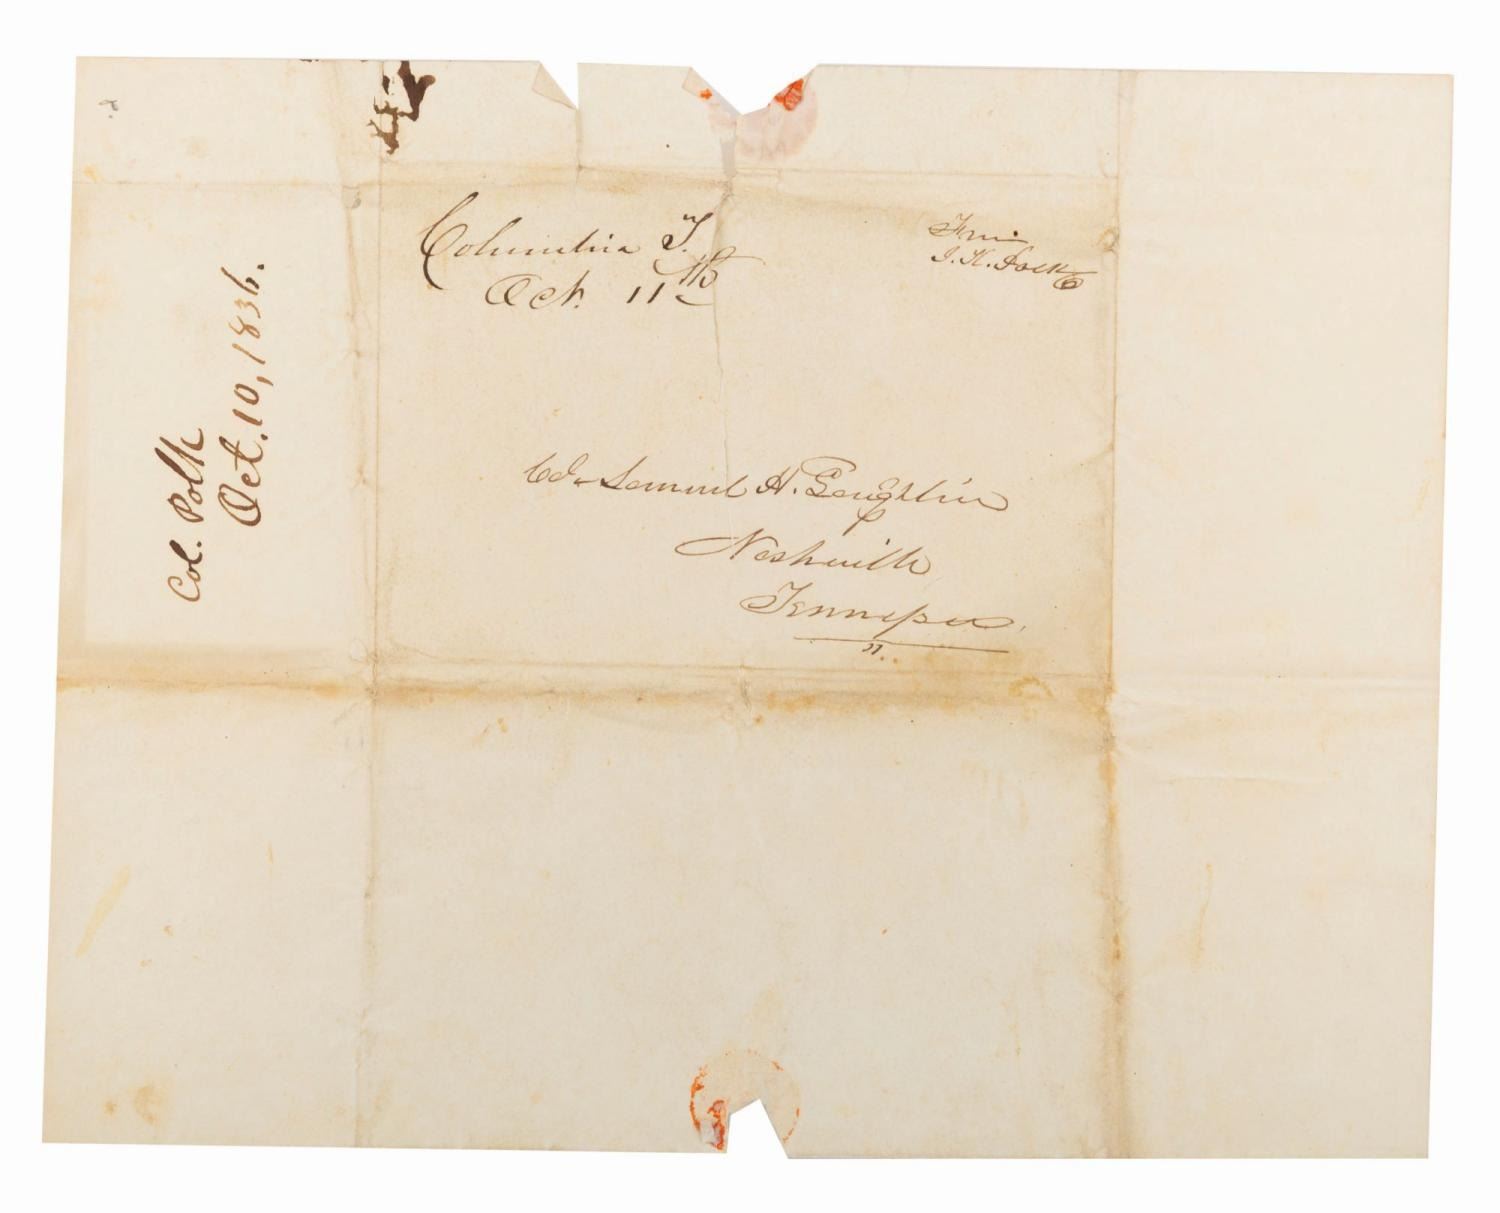 Columbia T.
Oct. 11th
Free
J. K. Polk
Col. Samuel H. Laughlin
Nashville
Tennessee.
Col. Polk
Oct. 10, 1836.